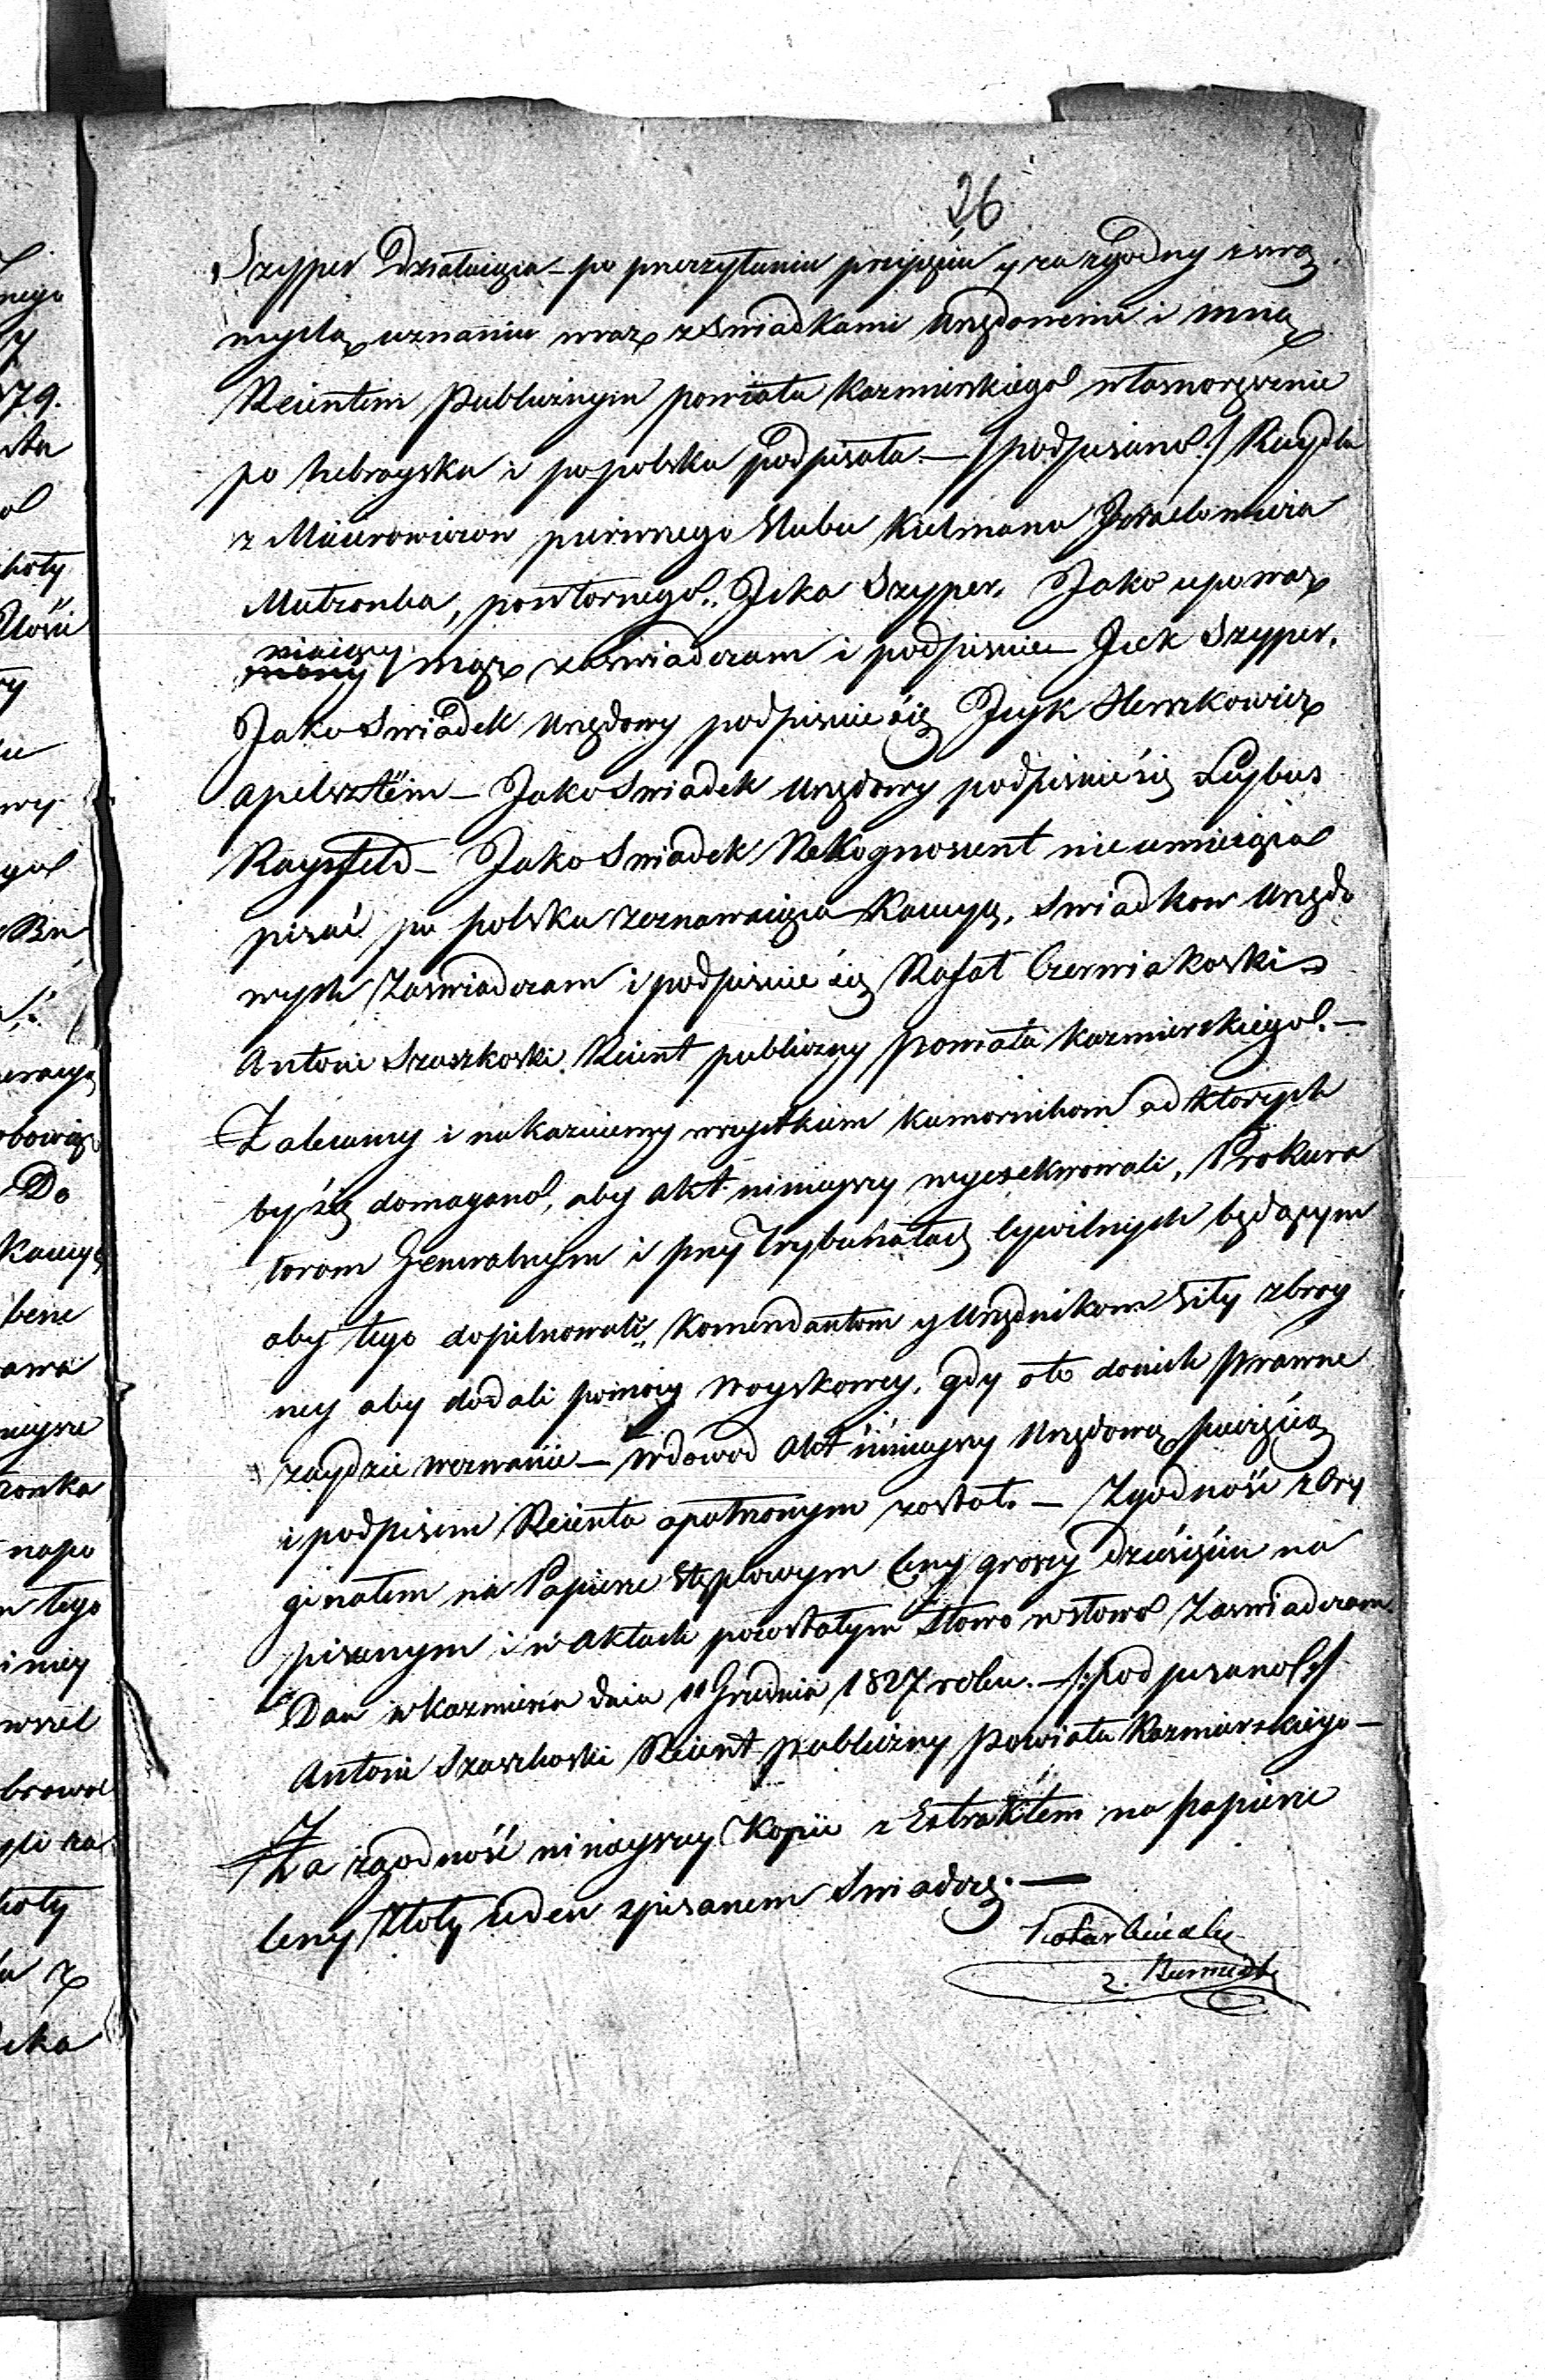 26
Szyper Działaiąca – po przeczytaniu przyięciu y za zgodny z swą
myslą uznaniu wraz z Swiadkami Urzędowemi i mną
Reientem Publicznym powiatu Kazmirskiego własnoręcznie
po hebraysku i po polsku podpisała. – /podpisano:/ Raydla
z Maierowiczow pierwszego slubu Kielmana Izraelowicza
Matzonka, powtornego Icka Szyper. Jako upoważ
niaiący mąż zaswiadczam i podpisuie Icek Szyper.
Jako Swiadek Urzędowy podpisuie się Icyk Herszkowicz
Apelsztein – Jako Swiadek Urzędowy podpisuie się Leybus
Raysfeld – Jako Swiadek Rekognosent nie umieiąca
pisać po polsku zeznawaiąca Kaucyą, Swiadkow Urzędo
wych Zaswiadczam i podpisuie się Rafał Czerwiakoski
Antoni Szaszkoski Reient publiczny powiatu Kazmierskiego. –
Zalecamy i nakazuiemy wszystkim Kamornikom od ktorych
by się domagano, aby akt ninieyszy wyexekwowali, Prokura
torom Generalnym i przy Trybunałach Cywilnych będącym
aby tego dopilnowali, Komendantom y Urzędnikom siły zbroy
ney aby dodali pomocy woyskowey, gdy o to do nich prawne
zaydzie wezwanie – W dowod Akt ninieyszy Urzędową pieczęcią
i podpisem Reienta opatrzonym został. – Zgodność z Ory
ginałem na Papierze Stęplowym Ceny groszy dziesięciu na
pisanym i w aktach pozostałym słowo w słowo Zaswiadczam.
Dan w Kazmierzu dnia 11 Grudnia 1827 roku. – /:Podpisano:/
Antoni Szaszkoski Reient publiczny Powiatu Kazmirskiego –
Za zgodność ninieyszey Kopii z Extraktem na papierze
Ceny Złoty ieden spisanem Swiadczę. –